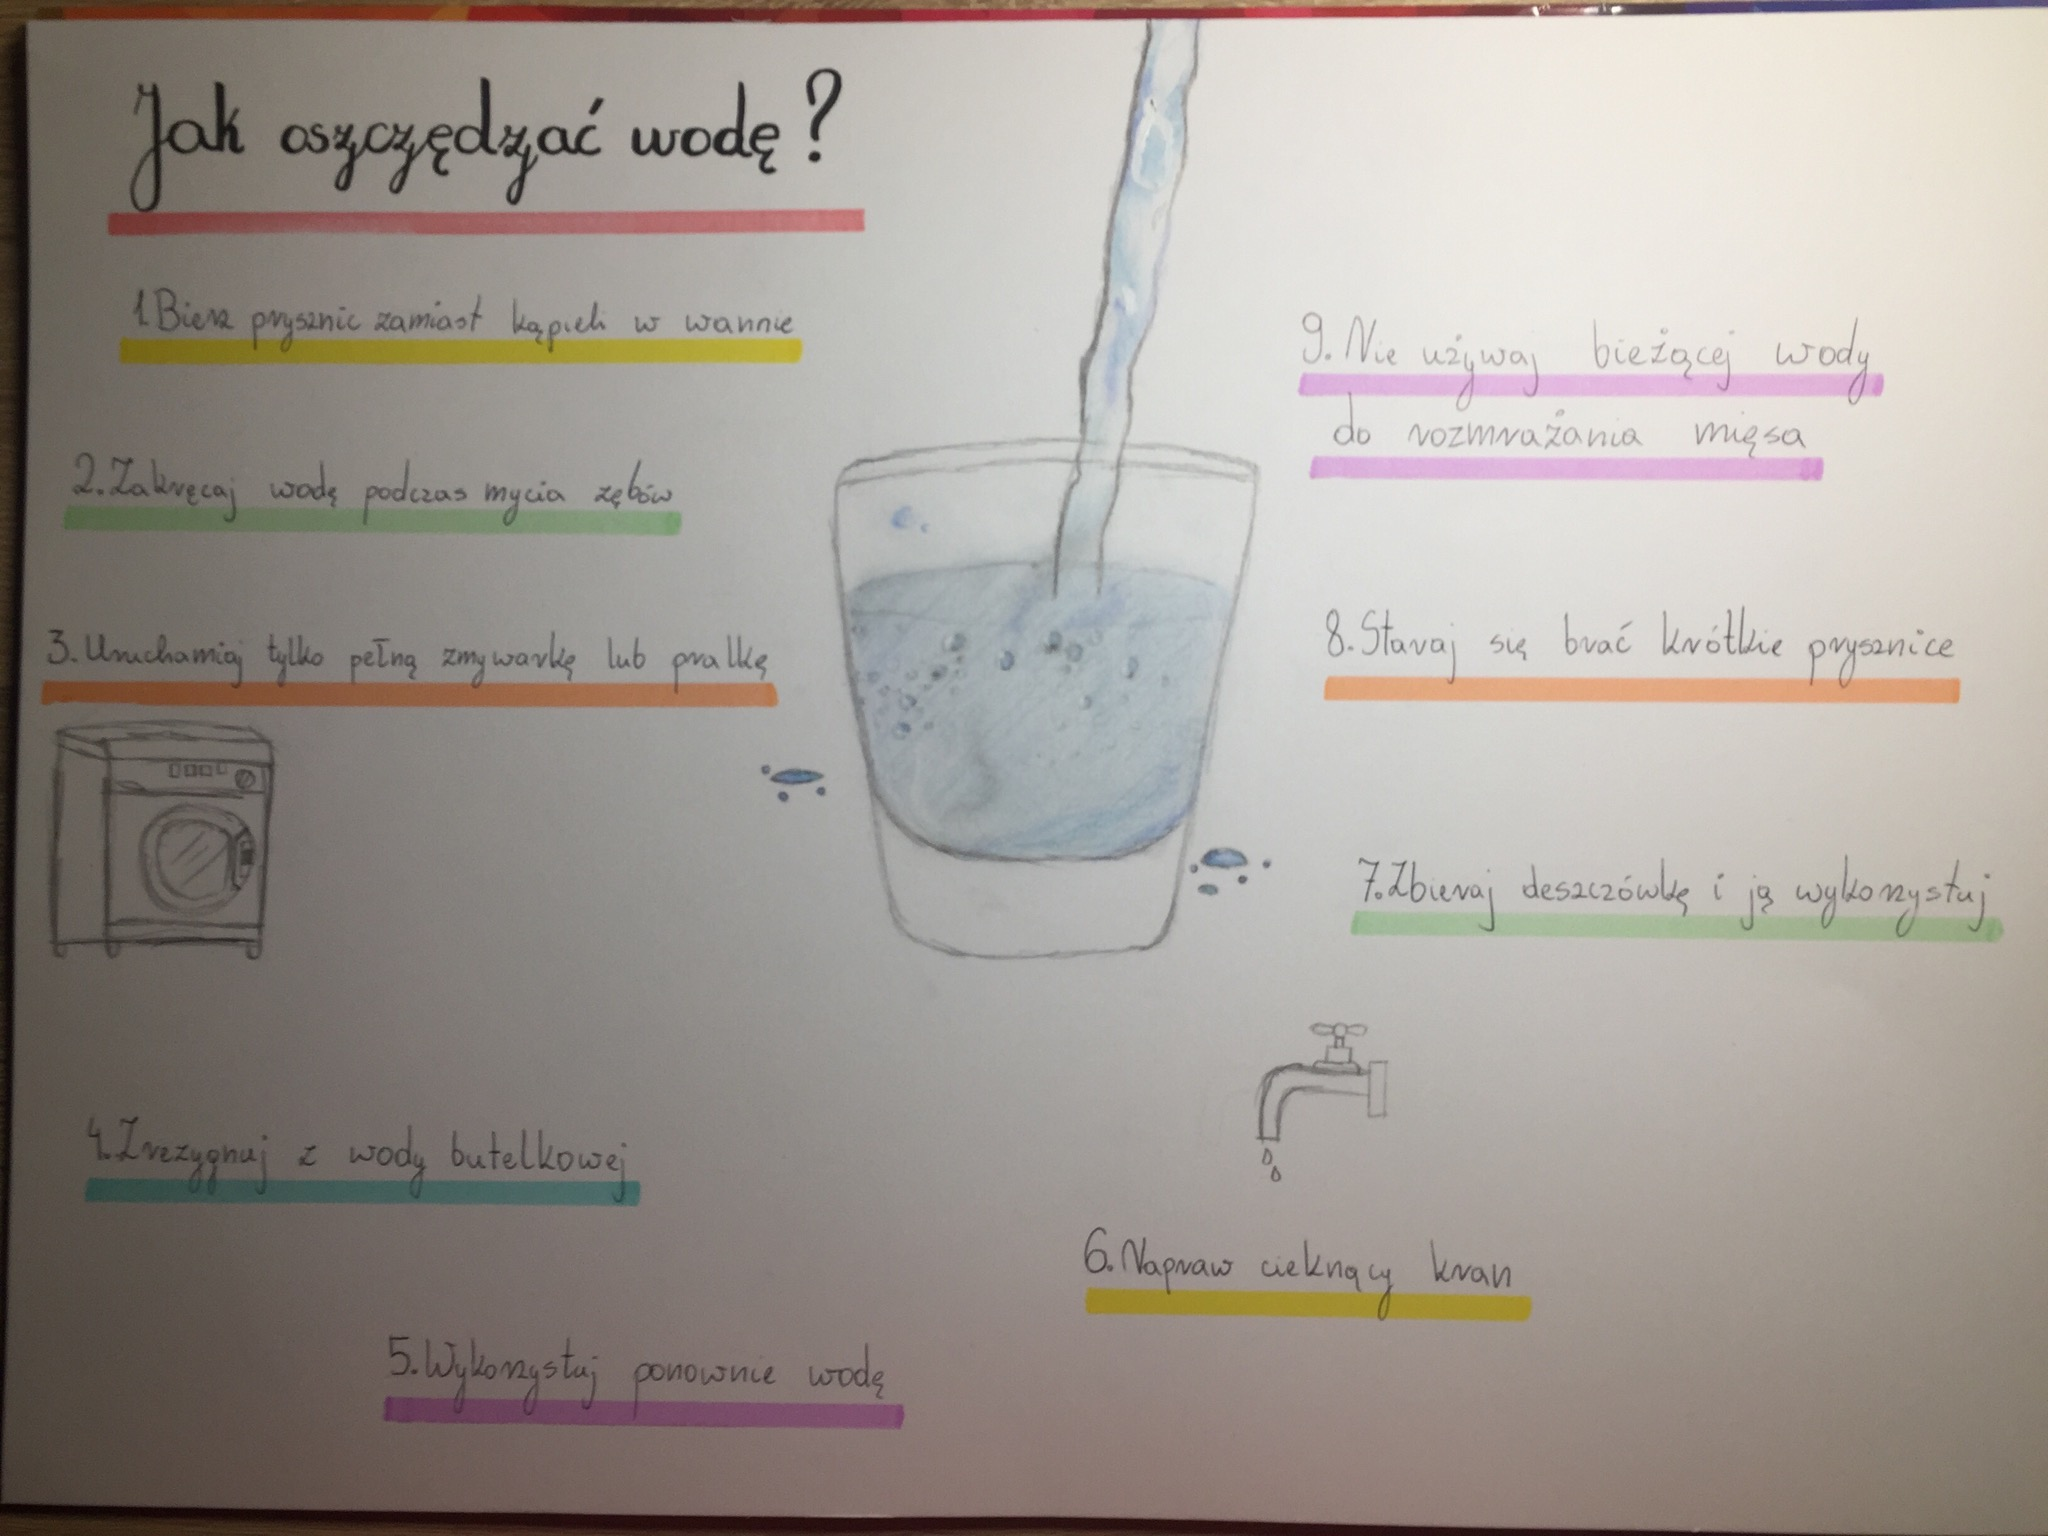 Jak oszczędzać wodę?
1 Bierz prysznic zamiast kąpieli w wannie
2. Zakręcaj wodę podczas mycia zębów
3. Uruchamiaj tylko pełną zmywarkę lub pralkę
4. Zrezygnuj z wody butelkowej
5. Wykorzystuj ponownie wodę
6. Napraw cieknący kran
7. Zbieraj deszczówkę i ją wykorzystuj
8. Staraj się brać krótkie prysznice
9. Nie używaj bieżącej wody
do rozmrażania mięsa